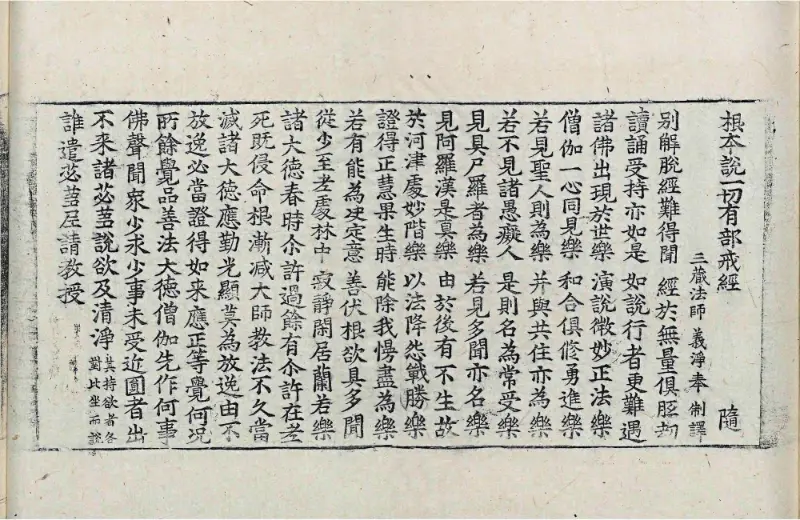 根本說一切有部戒經 隨
三藏法師 義淨奉 制譯
别解脫經難得聞 經於無量俱胝劫
讀誦受持亦如是 如說行者更難遇
諸佛出現於世樂 演說微妙正法樂
僧伽一心同見樂 和合俱修勇進樂
若見聖人則為樂 并與共住亦為樂
若不見諸愚癡人 是則名為常受樂
見具尸羅者為樂 若見多聞亦名樂
見阿羅漢是真樂 由於後有不生故
於河津處妙階樂 以法降怨戰勝樂
證得正慧果生時 能除我慢盡為樂
若有能為决定意 善伏根欲具多聞
從少至老處林中 寂靜閑居蘭若樂
諸大德春時尒許過餘有尒許在老
死既侵命根漸減大師教法不久當
滅諸大德應勤光顯莫為放逸由不
放逸必當證得如来應正等覺何况
所餘覺品善法大德僧伽先作何事
佛聲聞衆少求少事未受近圓者出
不来諸苾芻說欲及清淨 其持欲者各對比坐而說
誰遣苾芻尼請教授